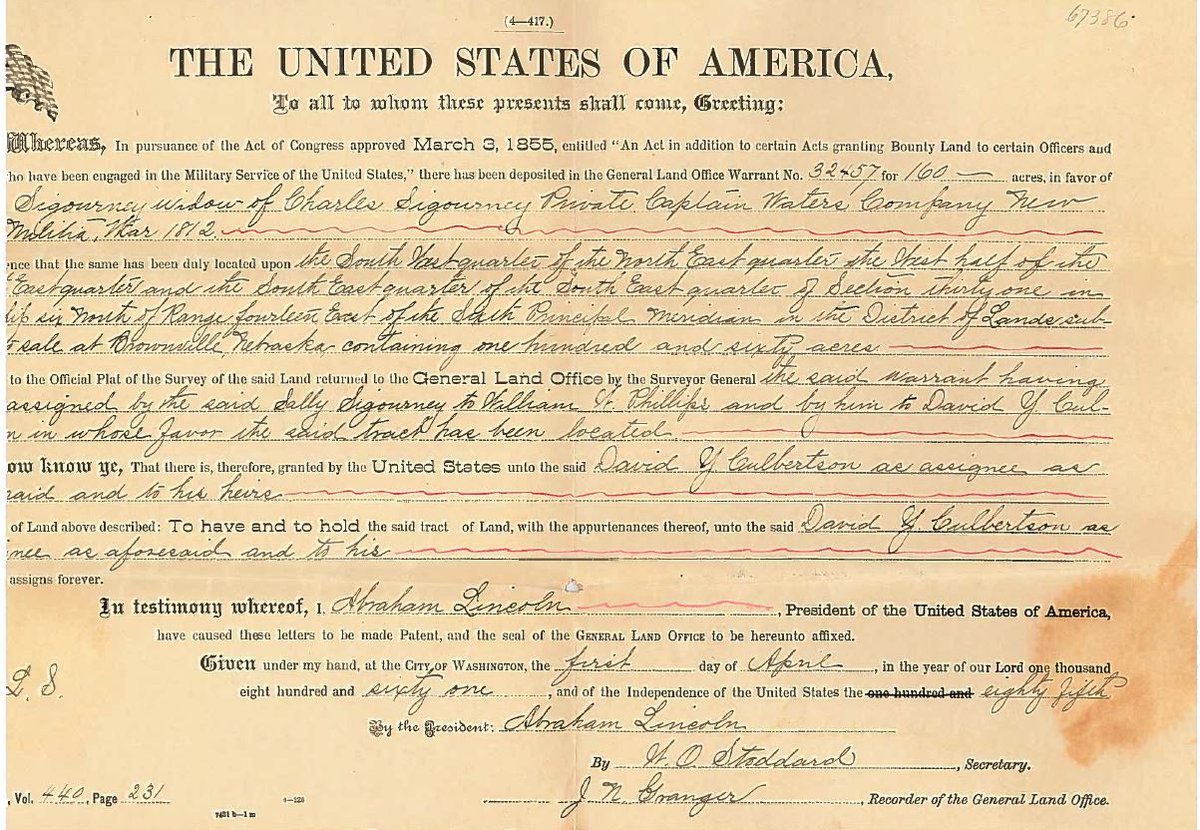 (4—417.)
67386
THE UNITED STATES OF AMERICA,
To all to whom these presents shall come, Greeting:
Whereas, In pursuance of the Act of Congress approved March 3, 1855, entitled "An Act in addition to certain Acts granting Bounty Land to certain Officers and
ho have been engaged in the Military Service of the United States," there has been deposited in the General Land Office Warrant No. 32457 for 160 — acres, in favor of
Sigourney widow of Charles Sigourney Private Captain Waters Company New
Militia, War 1812.
nce that the same has been duly located upon the South West quarter of the North East quarter the West half of the
East quarter and the South East quarter of the South East quarter of Section thirty one in
ip six North of Range fourteen East of the Sixth Principal Meridian in the District of Lands sub-
sale at Brownville Nebraska containing one hundred and sixty acres
to the Official Plat of the Survey of the said Land returned to the General Land Office by the Surveyor General the said warrant having
assigned by the said Sally Sigourney to William W. Phillips and by him to David Y Cul-
n in whose favor the said tract has been located
ow know ye, That there is, therefore, granted by the United States unto the said David Y Culbertson as assignee as
said and to his heirs
of Land above described: To have and to hold the said tract of Land, with the appurtenances thereof, unto the said David Y. Culbertson as
nee as aforesaid and to his
assigns forever.
In testimony whereof, I, Abraham Lincoln, President of the United States of America,
have caused these letters to be made Patent, and the seal of the General Land Office to be hereunto affixed.
Given under my hand, at the City of Washington, the first day of April, in the year of our Lord one thousand
L. S.
eight hundred and sixty one, and of the Independence of the United States the one hundred and eighty fifth
By the President: Abraham Lincoln
By W. O. Stoddard, Secretary.
, Vol. 440, Page 231
4—220
J. N. Granger, Recorder of the General Land Office.